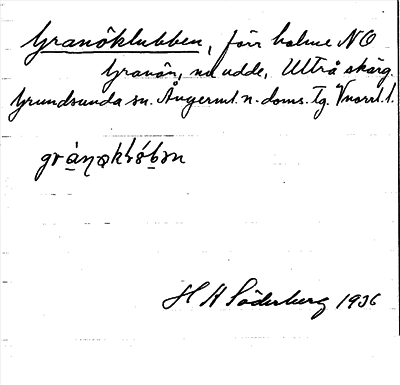 Granöklubben, förr holme NO
Granön, nu udde, Ultrå skärg.
Grundsunda sn. Ångerml. n. doms. Tg. Vnorrl. l.
H H Söderberg 1936